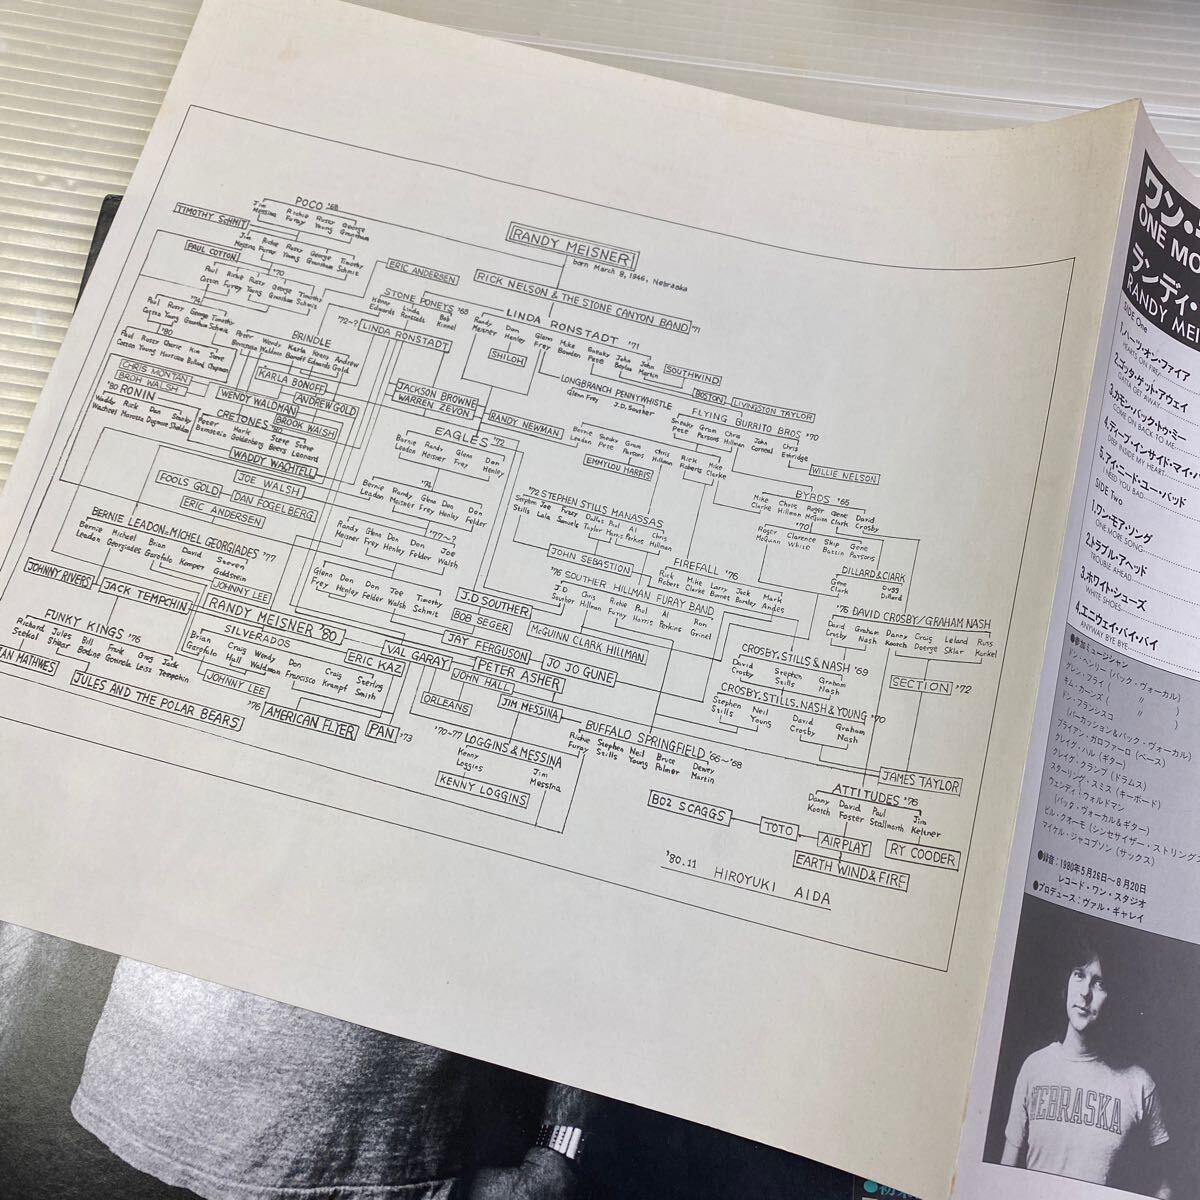 POCO '68
Jim Richie Rusty George
Messina Furay Young Grantham
TIMOTHY SCHMIT
Jim Richie Rusty George Timothy
Messina Furay Young Grantham Schmit
PAUL COTTON
'70
Paul Richie Rusty George Timothy
Cotton Furay Young Grantham Schmit
'74
Paul Rusty George Timothy
Cotton Young Grantham Schmit
'80
RANDY MEISNER
born March 8, 1946, Nebraska
ERIC ANDERSEN
RICK NELSON & THE STONE CANYON BAND '71
STONE PONEYS '68
Kenny Linda Bob
Edwards Ronstadt Kimmel
'72~?
LINDA RONSTADT
LINDA RONSTADT '71
Randy Don Glenn Mike Sneaky John John
Meisner Henley Frey Bowden Pete Boylan Martin
SHILOH
SOUTHWIND
BRINDLE
Peter Wendy Karla Kenny Andrew
Bernstein Waldman Bonoff Edwards Gold
KARLA BONOFF
ANDREW GOLD
CHRIS MONTAN
BROH WALSH
WENDY WALDMAN
BROOK WALSH
'80 RONIN
Waddy Rick Dan Stanley
Wachtel Marotta Dugmore Sheldon
CRETONES '80
Peter Mark Steve Steve
Bernstein Goldenberg Beers Leonard
WADDY WACHTELL
JACKSON BROWNE
WARREN ZEVON
RANDY NEWMAN
LONGBRANCH PENNYWHISTLE
Glenn Frey J.D. Souther
BOSTON
LIVINGSTON TAYLOR
FLYING BURRITO BROS '70
Sneaky Gram Chris John Chris
Pete Parsons Hillman Corneal Ethridge
WILLIE NELSON
EAGLES '72
Bernie Randy Glenn Don
Leadon Meisner Frey Henley
Bernie Sneaky Gram Chris Rick Mike
Leadon Pete Parsons Hillman Roberts Clarke
EMMYLOU HARRIS
BYRDS '65
Mike Chris Roger Gene David
Clarke Hillman McGuinn Clark Crosby
'70
Roger Clarence Skip Gene
McGuinn White Battin Parsons
JOE WALSH
FOOLS GOLD
DAN FOGELBERG
ERIC ANDERSEN
'74
Bernie Randy Glenn Don Don
Leadon Meisner Frey Henley Felder
'77~?
Randy Glenn Don Don Joe
Meisner Frey Henley Felder Walsh
Glenn Don Don Joe Timothy
Frey Henley Felder Walsh Schmit
'72 STEPHEN STILLS MANASSAS
Stephen Joe Fuzzy Dallas Paul Al Chris
Stills Lala Samuels Taylor Harris Perkins Hillman
JOHN SEBASTION
FIREFALL '76
Rick Mike Larry Jock Mark
Robert Clarke Burnet Bartley Andes
DILLARD & CLARK
Gene Dugg
Clark Dillard
BERNIE LEADON=MICHEL GEORGIADES '77
Bernie Michael Brian David Steven
Leadon Georgiades Garofalo Kemper Goldstein
JOHNNY LEE
JOHNNY RIVERS
JACK TEMPCHIN
'76 SOUTHER HILLMAN FURAY BAND
J.D Chris Richie Paul Al Ron
Souther Hillman Furay Harris Perkins Grinel
J.D SOUTHER
BOB SEGER
McGUINN CLARK HILLMAN
'76 DAVID CROSBY/GRAHAM NASH
David Graham Danny Craig Leland Russ
Crosby Nash Kootch Doerge Sklar Kunkel
SECTION '72
RANDY MEISNER '80
SILVERADOS
Brian Craig Wendy Don Craig Sterling
Garofalo Hull Waldman Francisco Krampf Smith
FUNKY KINGS '76
Richard Jules Bill Frank Greg Jack
Stekol Shear Bodine Leisz Tempchin
JULES AND THE POLAR BEARS
JOHNNY LEE
VAL GARAY
ERIC KAZ
JAY FERGUSON
PETER ASHER
JO JO GUNE
JOHN HALL
ORLEANS
JIM MESSINA
'76
AMERICAN FLYER
PAN '73
CROSBY, STILLS & NASH '69
David Stephen Graham
Crosby Stills Nash
CROSBY, STILLS, NASH & YOUNG '70
Stephen Neil David Graham
Stills Young Crosby Nash
'70~77
LOGGINS & MESSINA
Kenny Jim
Loggins Messina
KENNY LOGGINS
BUFFALO SPRINGFIELD '66~'68
Richie Stephen Neil Bruce Dewey
Furay Stills Young Palmer Martin
JAMES TAYLOR
ATTITUDES '76
Danny David Paul Jim
Kootch Foster Stallworth Keltner
BOZ SCAGGS
TOTO
AIRPLAY
RY COODER
EARTH WIND & FIRE
'80.11 HIROYUKI AIDA
ワン・
ONE MO
ランディ・
RANDY MEI
SIDE One
1.ハーツ・オン・ファイア
HEARTS ON FIRE
2.ゴッタ・ゲット・アウェイ
GOTTA GET AWAY
3.カモン・バック・トゥ・ミー
COME ON BACK TO ME
4.ディープ・インサイド・マイ・ハ
DEEP INSIDE MY HEART
5.アイ・ニード・ユー・バッド
I NEED YOU BAD
SIDE Two
1.ワン・モア・ソング
ONE MORE SONG
2.トラブル・アヘッド
TROUBLE AHEAD
3.ホワイト・シューズ
WHITE SHOES
4.エニウェイ・バイ・バイ
ANYWAY BYE BYE
●参加ミュージシャン
ドン・ヘンリー(バック・ヴォーカル)
グレン・フライ( 〃 )
キム・カーンズ( 〃 )
ドン・フランシスコ
(パーカッション&バック・ヴォーカル)
ブライアン・ガロファーロ(ベース)
クレイグ・ハル(ギター)
クレイグ・クランプ(ドラムス)
スターリング・スミス(キーボード)
ウェンディ・ウォルドマン
(バック・ヴォーカル&ギター)
ビル・クオーモ(シンセサイザー・ストリングス
マイケル・ジャコブソン(サックス)
●録音:1980年5月26日~8月20日
レコード・ワン・スタジオ
●プロデュース:ヴァル・ギャレイ
NEBRASKA